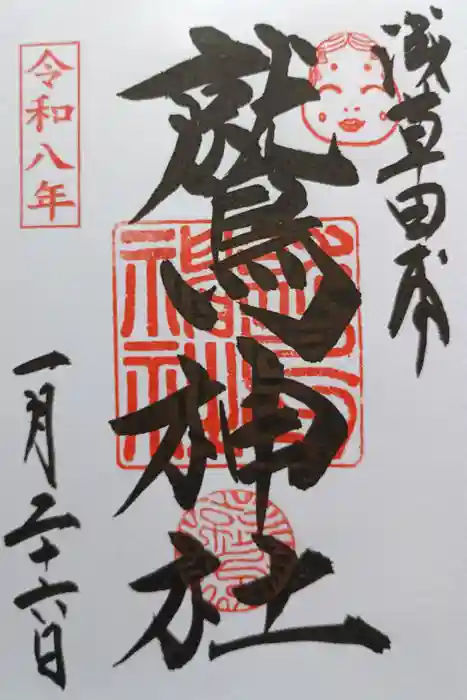 浅草田圃
鷲神社
令和八年
一月二十六日